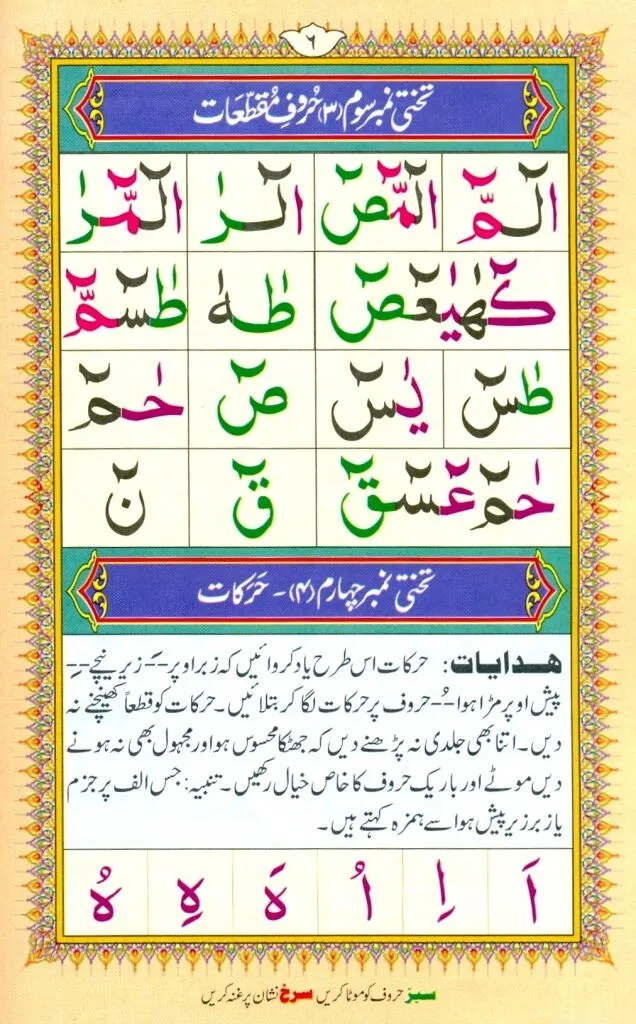 ۶
تختی نمبر سوم (۳) حُروفِ مُقطّعَات
الٓـمّٓ الٓمّٓصٓ الٓـرٰ الٓمّٓرٰ
كٓهٰيٰعٓصٓ طٰـهٰ طٰسٓمّٓ
طٰسٓ يٰسٓ صٓ حٰـمٓ
حٰمٓ عٓسٓقٓ قٓ نٓ
تختی نمبر چہارم (۴) - حَرَکات
ھدایات: حرکات اس طرح یاد کروائیں کہ زبر اوپر -َ- زیر نیچے -ِ-
پیش اوپر مڑا ہوا -ُ- حروف پر حرکات لگا کر بتلائیں۔ حرکات کو قطعاً کھینچنے نہ
دیں۔ اتنا بھی جلدی نہ پڑھنے دیں کہ جھٹکا محسوس ہو اور مجہول بھی نہ ہونے
دیں موٹے اور باریک حروف کا خاص خیال رکھیں۔ تنبیہ: جس الف پر جزم
یا زبر زیر پیش ہو اسے ہمزہ کہتے ہیں۔
اَ اِ اُ هَ هِ هُ
سبز حروف کو موٹا کریں سرخ نشان پر غنہ کریں